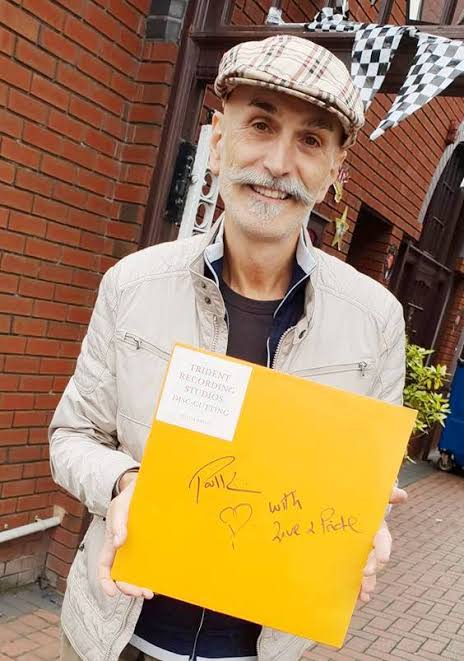 TRIDENT
RECORDING
STUDIOS
DISC-CUTTING
with
Love & Pride